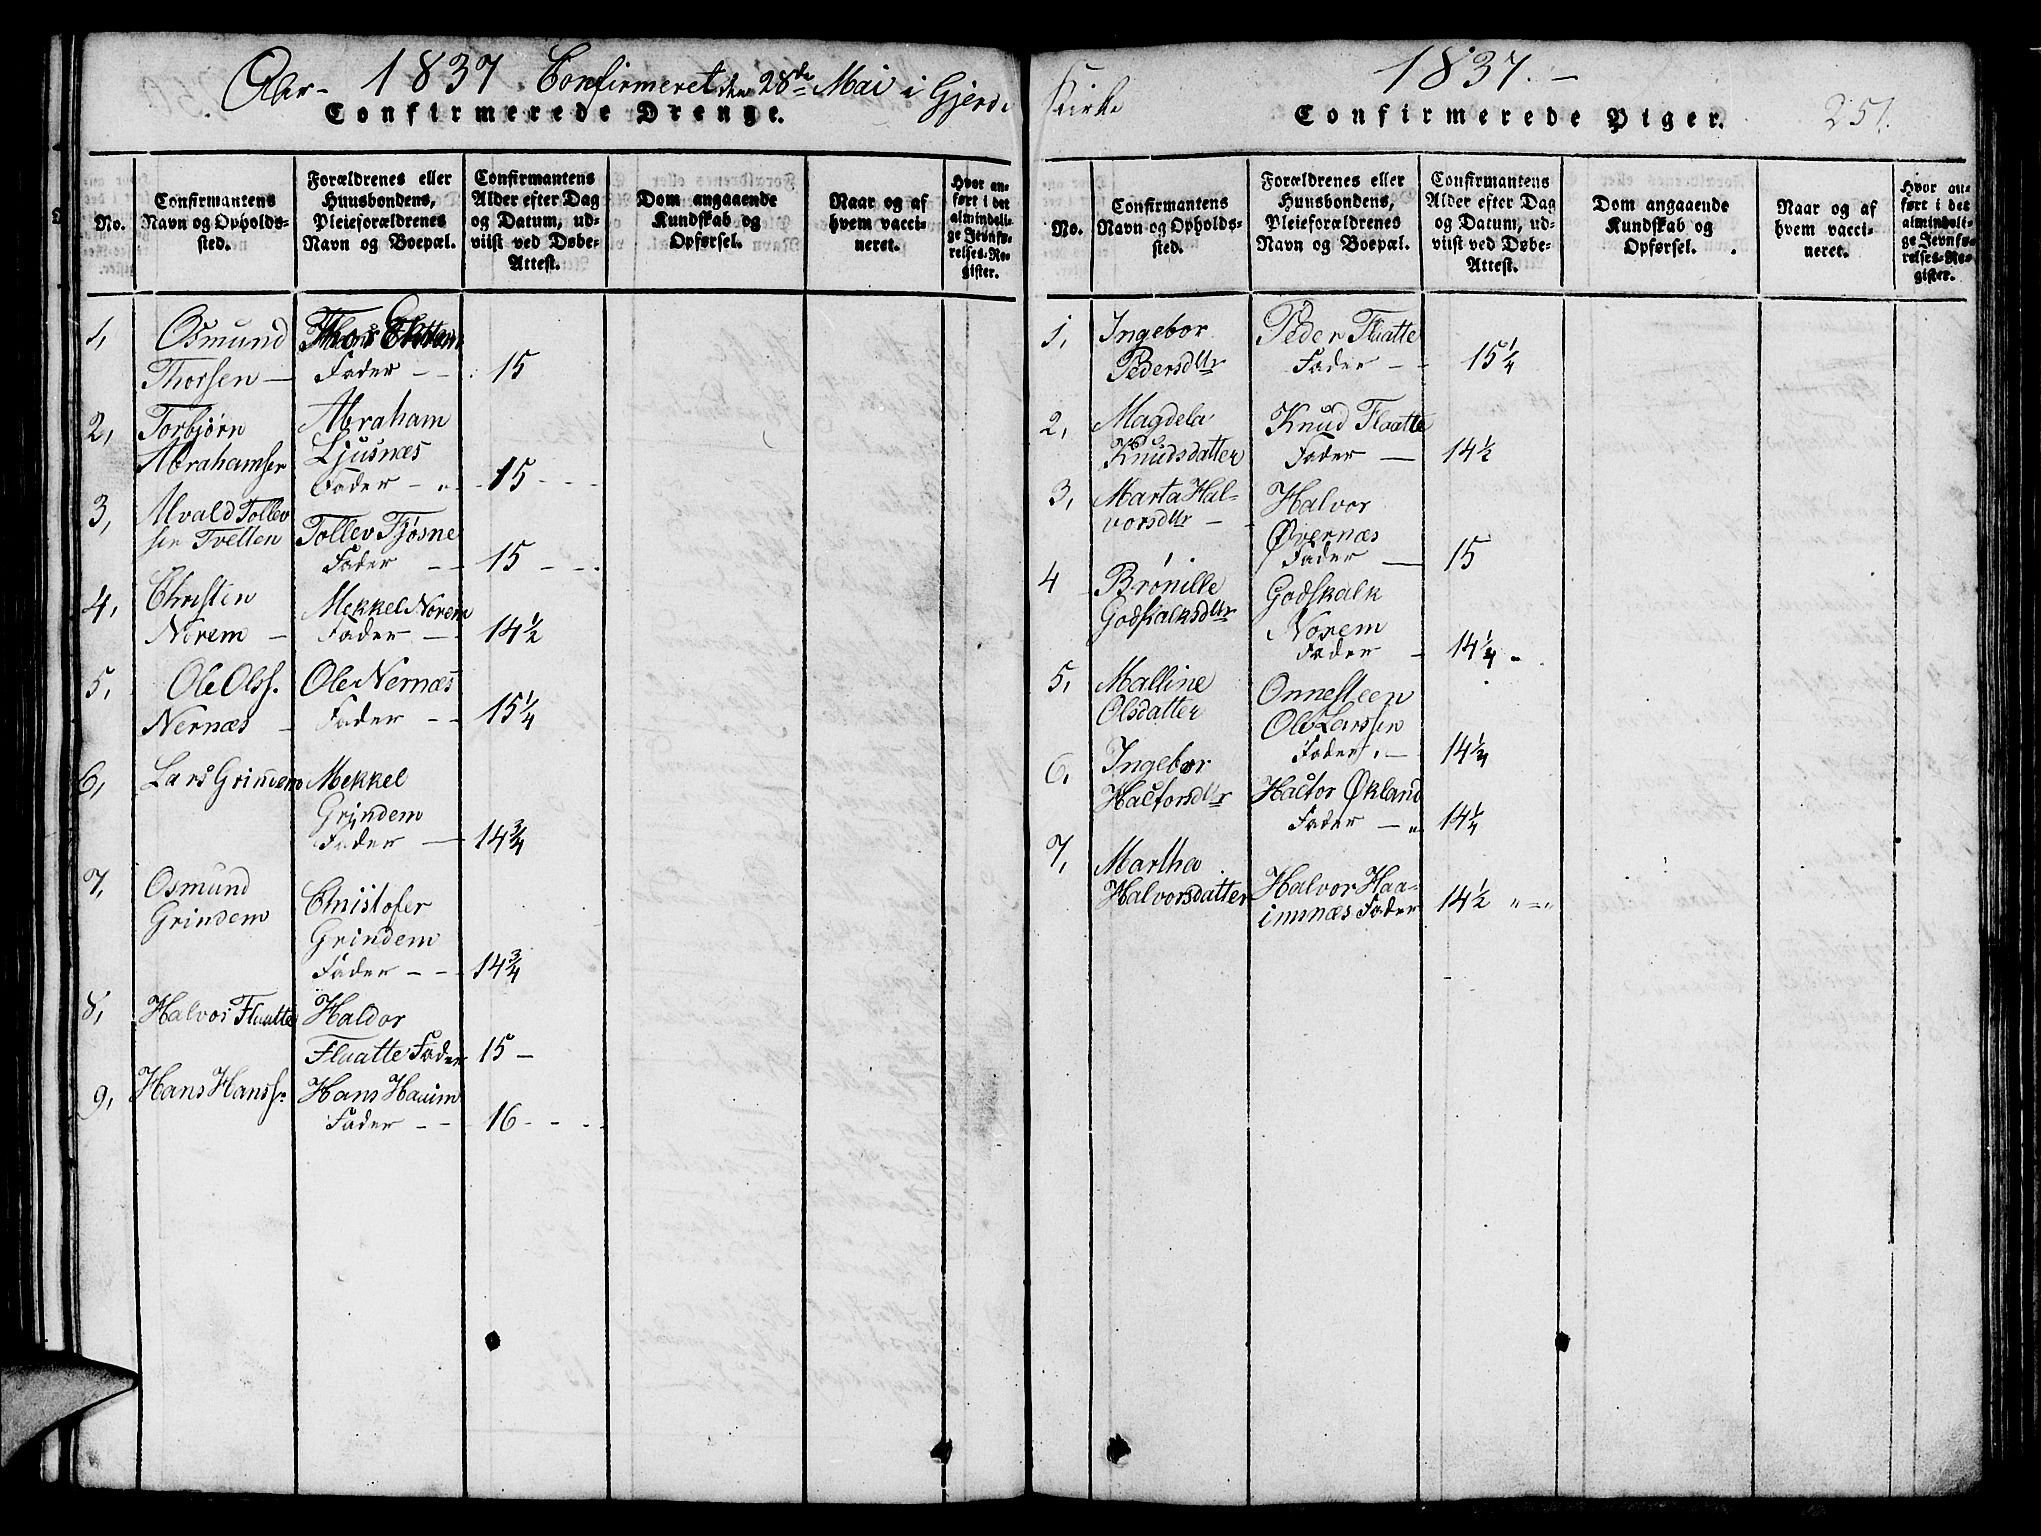 Aar- 1837 Confirmeret den 28de Mai i Gjerde
Confirmerede Drenge.
No.
Confirmantens
Navn og Opholds-
sted.
Forældrenes eller
Huusbondens,
Pleieforældrenes
Navn og Boepæl.
Confirmantens
Alder efter Dag
og Datum, ud-
viist ved Døbe-
Attest.
Dom angaaende
Kundskab og
Opførsel.
Naar og af
hvem vacci-
neret.
Hvor an-
ført i det
almindeli-
ge Jevnfø-
relses-Re-
gister.
1, Osmund
Thorsen —
Thor
Fader - - 15
2, Torbjørn
Abrahamsen
Abraham
Ljusnæs
Fader - 15
3, Alvald Tollev
sen Tvetten
Tollev Tjøsne
Fader - - 15
4, Christen
Norem —
Mekkel Norem
Fader - - 14½
5, Ole Olss.
Nernæs -
Ole Nernæs
Fader - - 15¼
6, Lars Grindem
Mekkel
Grindem
Fader — 14¾
7, Osmund
Grindem
Christofer
Grindem
Fader - - 14¾
8, Halvor Flaatte
Haldor
Flaatte Fader 15 -
9, Hans Hanss.
Hans Hauim
Fader - - 16
Kirke
1837. -
Confirmerede Piger.
251.
No.
Confirmantens
Navn og Opholds-
sted.
Forældrenes eller
Huusbondens,
Pleieforældrenes
Navn og Boepæl.
Confirmantens
Alder efter Dag
og Datum, ud-
viist ved Døbe-
Attest.
Dom angaaende
Kundskab og
Opførsel.
Naar og af
hvem vacci-
neret.
Hvor an-
ført i det
almindeli-
ge Jevnfø-
relses-Re-
gister.
1, Ingebor
Pedersdttr
Peder Flaatte
Fader - - 15¼
2, Magdela
Knudsdatter
Knud Flaatte
Fader — 14½
3, Marta Hal-
vorsdttr -
Halvor
Øvernæs
Fader — 15
4 Brønille
Godskalksdttr
Godskalk
Norem
Fader - 14¼
5, Malline
Olsdatter
Onnesteen
Ole Larssen
Fader. - 14¼
6, Ingebor
Hactorsdttr
Hactor Økland
Fader - 14¼
7, Martha
Halvorsdatter
Halvor Haa-
imnæs Fader 14½